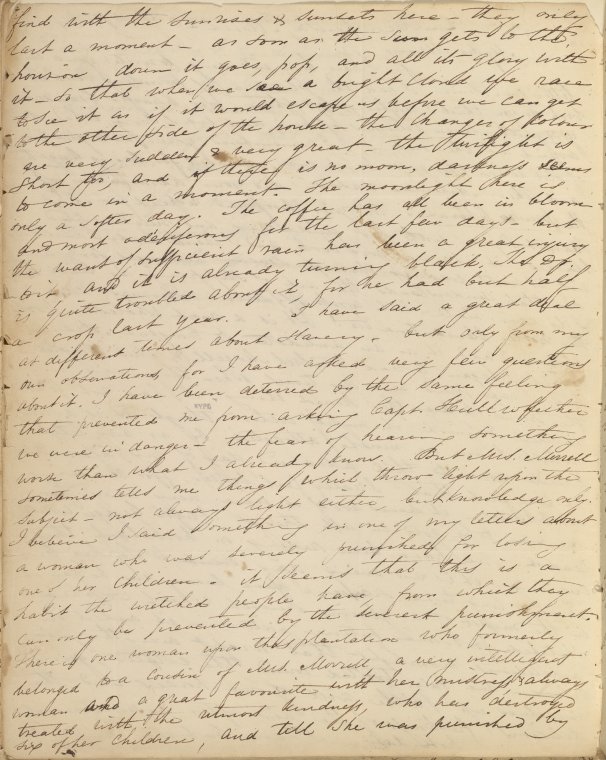 find with the sunrises & sunsets here - they only
last a moment - as soon as the sun gets to the
horison down it goes, pop, and all its glory with
it - so that when we see a bright cloud we race
to see it as if it would escape us before we can get
to the other side of the house - the changes of colour
are very sudden & very great - the twilight is
short too, and if there is no moon, darkness seems
to come in a moment. The moonlight here is
only a softer day. The coffee has all been in bloom
and most odoriferous for the last few days - but
the want of sufficient rain has been a great injury
to it and it is already turning black, the Dr.
is quite troubled about it, for he had but half
a crop last year. I have said a great deal
at different times about slavery - but only from my
own observations, for I have asked very few questions
about it. I have been deterred by the same feeling
that prevented me from asking Capt. Hull whether
we were in danger - the fear of hearing something
worse than what I already know. But Mrs. Morrell
sometimes tells me things which throw light upon the
subject - not always light either, but knowledge only.
I believe I said something in one of my letters about
a woman who was severely punished for losing
one of her children - it seems that this is a
habit the wretched people have, from which they
can only be prevented by the severest punishment.
There is one woman upon this plantation who formerly
belonged to a cousin of Mrs. Morrell, a very intelligent
woman and a great favourite with her mistress & always
treated with the utmost kindness, who has destroyed
six of her children, and tell she was punished by
NYPL